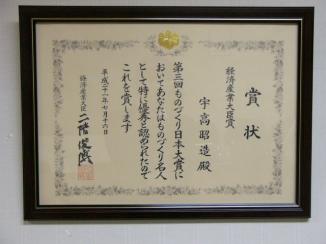 賞状
経済産業大臣賞
宇高昭造殿
第三回ものづくり日本大賞に
おいてあなたはものづくり名人
として特に優秀と認められたので
これを賞します
平成二十一年七月十六日
経済産業大臣 二階俊博